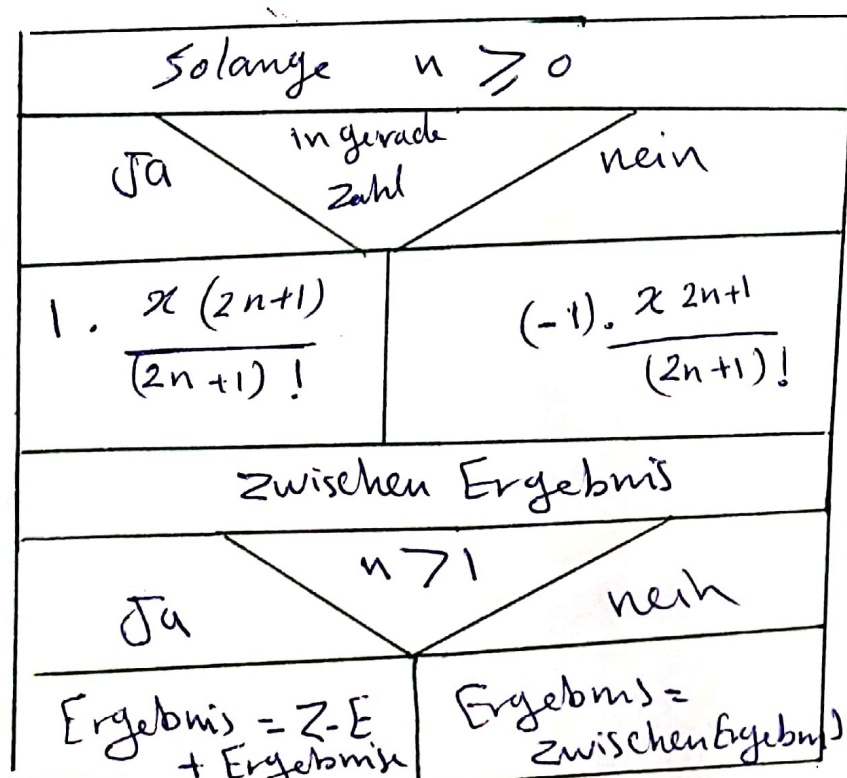 Solange n ≥ 0
in gerade
Ja
nein
Zahl
1 . x (2n+1)
(2n+1) !
(-1). x 2n+1
(2n+1)!
zwischen Ergebnis
n > 1
Ja
nein
Ergebnis = Z-E
+ Ergebnise
Ergebnis =
zwischenErgebnis